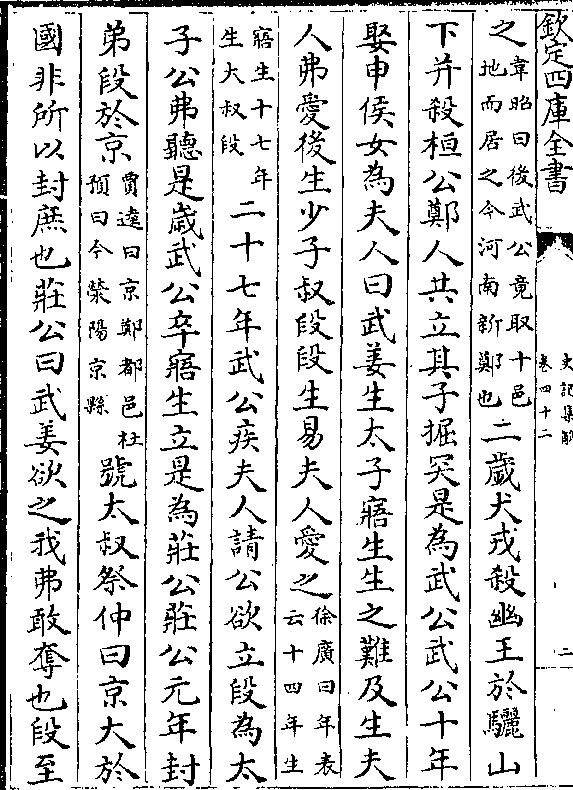 欽定四庫全書
史記集解
卷四十二
二
之韋昭曰後武公竟取十邑地而居之今河南新鄭也二歲犬戎殺幽王於驪山
下并殺桓公鄭人共立其子掘突是為武公武公十年
娶申侯女為夫人曰武姜生太子寤生生之難及生夫
人弗愛後生少子叔段段生易夫人愛之徐廣曰年表云十四年生
寤生十七年生大叔段二十七年武公疾夫人請公欲立段為太
子公弗聽是歲武公卒寤生立是為莊公莊公元年封
弟段於京賈逵曰京鄭都邑杜預曰今滎陽京縣號太叔祭仲曰京大於
國非所以封庶也莊公曰武姜欲之我弗敢奪也段至